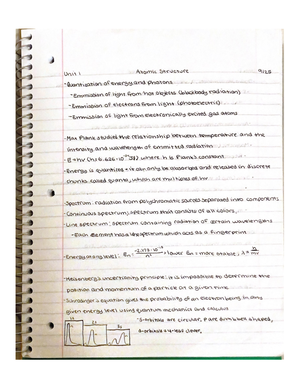 Unit 1 Atomic Structure 9/25
- Quantization of energy and photons
- Emmission of light from hot objects (blackbody radiation)
- Emmission of electrons from light (photoelectric)
- Emmission of light from electronically excited gas atoms
- Max Plank studied the relationship between temperature and the
intensity and wavelength of emmitted radiation
where h is Plank's constant
- Energy is quantized → it can only be absorbed and released in discrete
chunks called quanta, which are multiples of hv
- Spectrum: radiation from polychromatic sources separated into components
- Continuous spectrum: spectrum that consists of all colors
- Line spectrum: spectrum containing radiation of certain wavelengths
- Each element has a line spectrum which acts as a fingerprint
- Energy at any level: lower En = more stable,
- Heisenberg's uncertainty principle: it is impossible to determine the
position and momentum of a particle at a given time
- Schrodinger's equation gives the probability of an electron being in some
given energy level using quantum mechanics and calculus
s-orbitals are circular, p are dumbbell shaped,
d-orbitals = 4-leaf clover